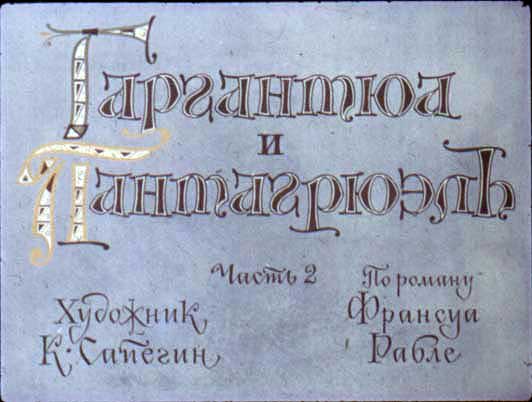 Гаргантюа
и
Пантагрюэль
Часть 2
По роману
Франсуа
Рабле
Художник
К. Сапегин